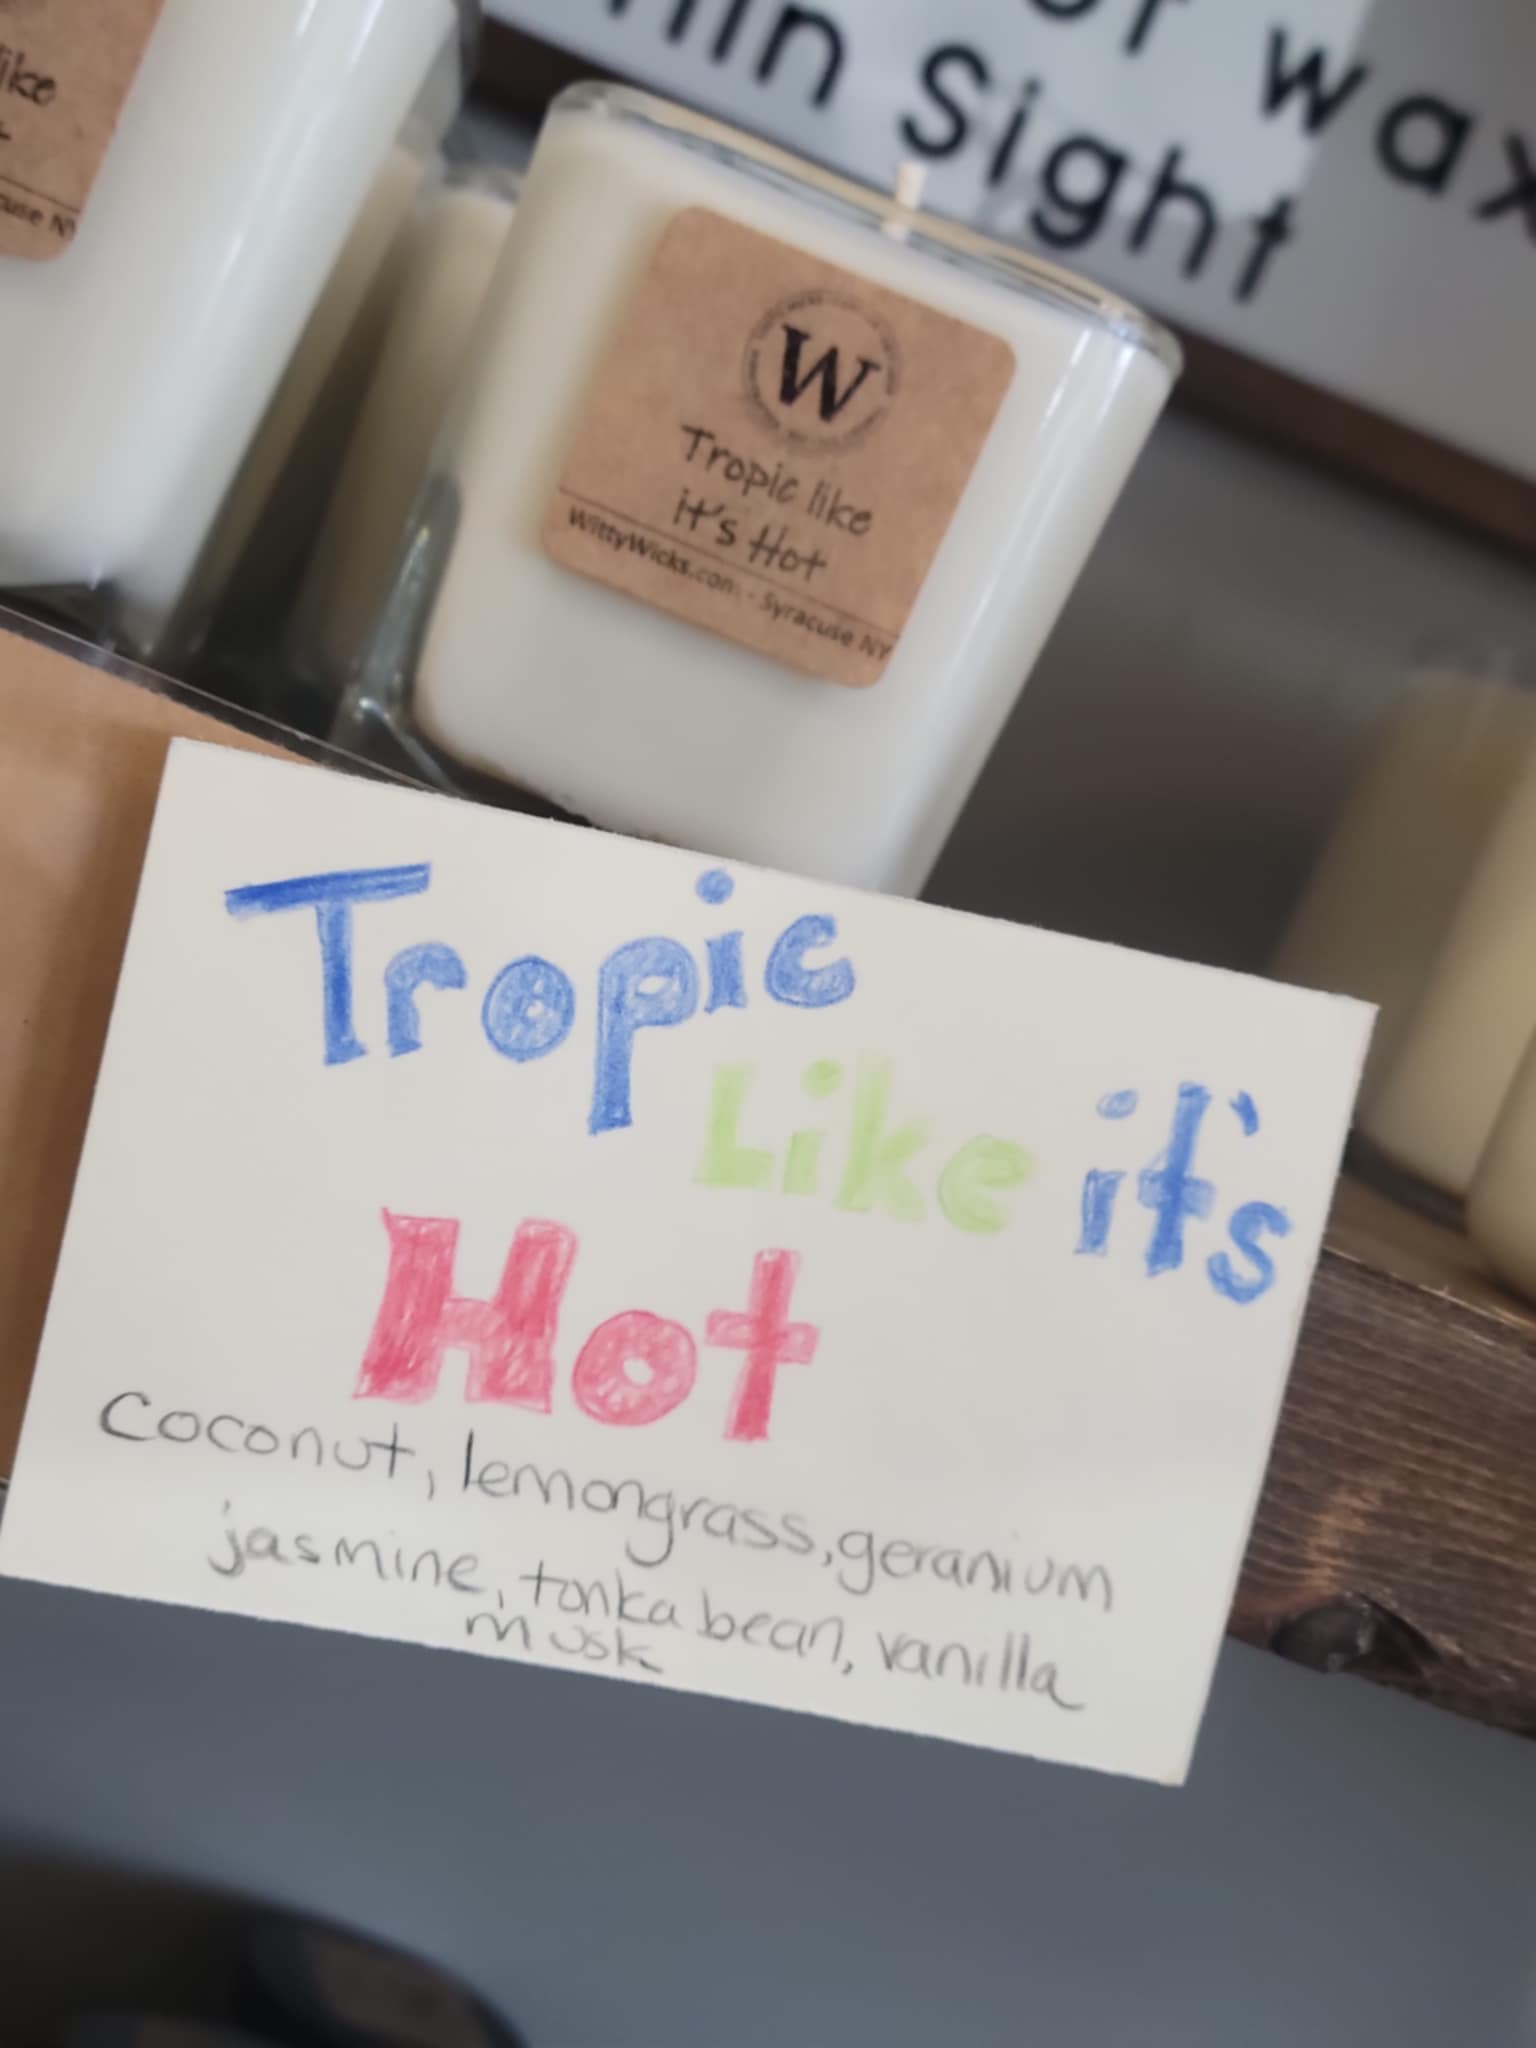 wax
Sight
like
NY
W
Tropic like
it's Hot
WittyWicks.com - Syracuse NY
Tropic
Like it's
Hot
Coconut, lemongrass, geranium
jasmine, tonka bean, vanilla
musk